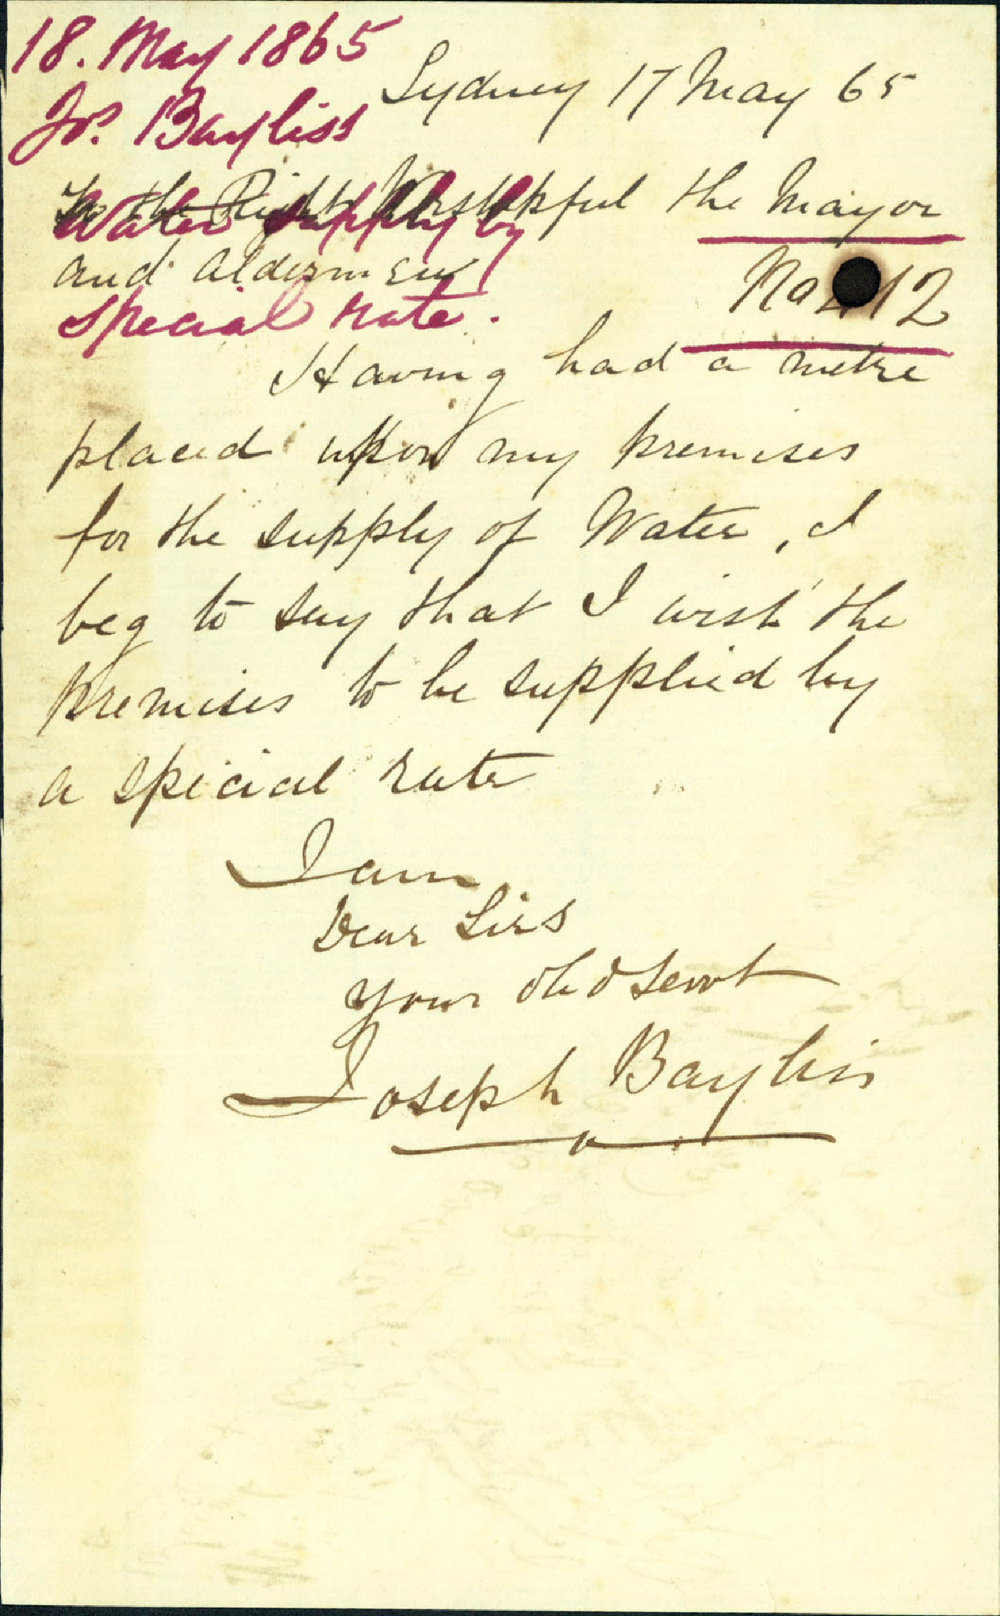 18. May 1865
Sydney 17 May 65
Jos. Bayliss
To the Right Worshipful the Mayor
Water Supply by
and aldermen
Special rate.
Having had a metre
placed upon my premises
for the supply of Water, I
beg to say that I wish the
premises to be supplied by
a special rate
I am
Dear Sirs
Your obd Servt
Joseph Bayliss